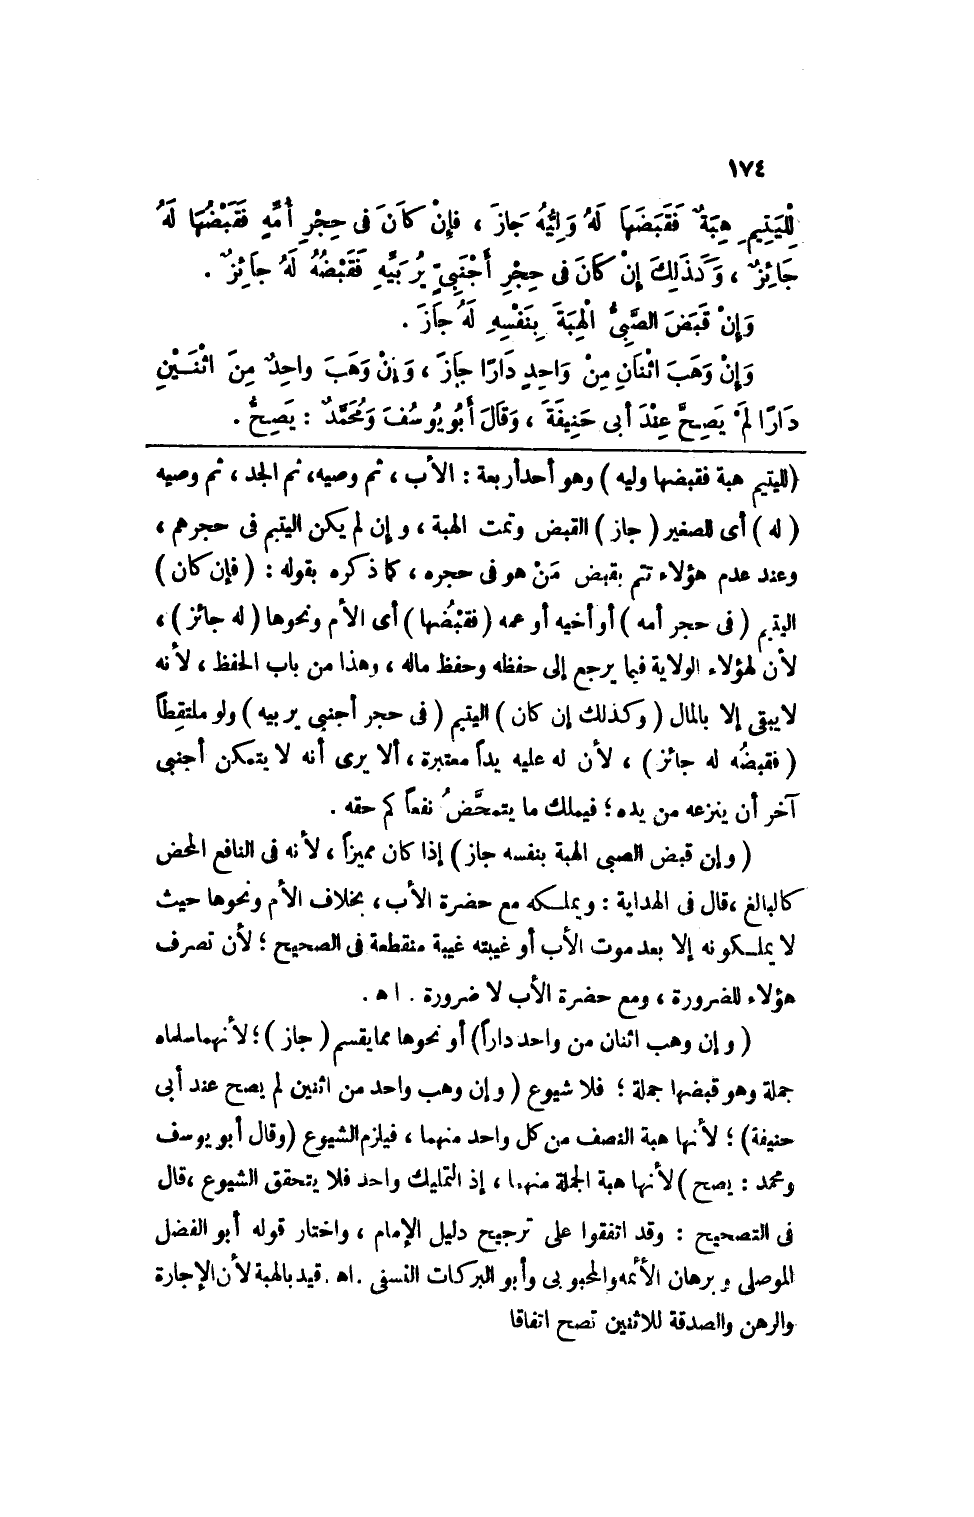 ١٧٤
لِلْيَتِيمِ هِبَةٌ فَقَبَضَهَا لَهُ وَلِيُّهُ جَازَ ، فَإِنْ كَانَ فى حِجْرِ أُمِّهِ فَقَبْضُهَا لَهُ
جَائِزٌ ، وَكَذَلِكَ إِنْ كَانَ فى حِجْرِ أَجْنَبِىٍّ يُرَبِّيهِ فَقَبْضُهُ لَهُ جائِزٌ .
وَإِنْ قَبَضَ الصَّبِىُّ الْهِبَةَ بِنَفْسِهِ لَهُ جَازَ .
وَإِنْ وَهَبَ اثْنَانِ مِنْ وَاحِدٍ دَارًا جَازَ ، وَإِنْ وَهَبَ واحِدٌ مِنَ اثْنَيْنِ
دَارًا لَمْ يَصِحَّ عِنْدَ أَبى حَنِيفَةَ ، وَقَالَ أَبُو يُوسُفَ وَمُحَمَّدٌ : يَصِحُّ .
(لليتيم هبة فقبضها وليه ) وهو أحد أربعة : الأب ، ثم وصيه، ثم الجد ، ثم وصيه
( له ) أى للصغير ( جاز ) القبض وتمت الهبة ، و إن لم يكن اليتيم فى حجرهم ،
وعند عدم هؤلاء تتم بقبض مَنْ هو فى حجره ، كما ذكره بقوله : ( فإن كان )
اليتيم ( فى حجر أمه ) أو أخيه أو عمه ( فقبْضُها ) أى الأم ونحوها ( له جائز ) ،
لأن لهؤلاء الولاية فيما يرجع إلى حفظه وحفظ ماله ، وهذا من باب الحفظ ، لأنه
لايبقى إلا بالمال ( وكذلك إن كان ) اليتيم ( فى حجر أجنبى يربيه ) ولو ملتقِطاً
( فقبضُه له جائز ) ، لأن له عليه يداً معتبرة ، ألا يرى أنه لا يتمكن أجنبى
آخر أن ينزعه من يده ؛ فيملك ما يتمحَّضُ نفعاً كم حقه .
( وإن قبض الصبى الهبة بنفسه جاز ) إذا كان مميزاً ، لأنه فى النافع المحض
كالبالغ ،قال فى الهداية : ويملكه مع حضرة الأب ، بخلاف الأم ونحوها حيث
لا يملكونه إلا بعد موت الأب أو غيبته غيبة منقطعة فى الصحيح ؛ لأن تصرف
هؤلاء للضرورة ، ومع حضرة الأب لا ضرورة . ا ه .
( و إن وهب اثنان من واحد داراً) أو نحوها مما يقسم ( جاز ) ؛ لأنهما سلماه
جملة وهو قبضها جملة ؛ فلا شيوع ( و إن وهب واحد من اثنين لم يصح عند أبى
حنيفة) ؛ لأنها هبة النصف من كل واحد منهما ، فيلزم الشيوع (وقال أبو يوسف
ومحمد : يصح ) لأنها هبة الجملة منهما ، إذ التمليك واحد فلا يتحقق الشيوع ،قال
فى التصحيح : وقد اتفقوا على ترجيح دليل الإمام ، واختار قوله أبو الفضل
الموصلى و برهان الأئمة والمحبوبى وأبو البركات النسفى .اه .قيد بالهبة لأن الإجارة
والرهن والصدقة للاثنين تصح اتفاقا